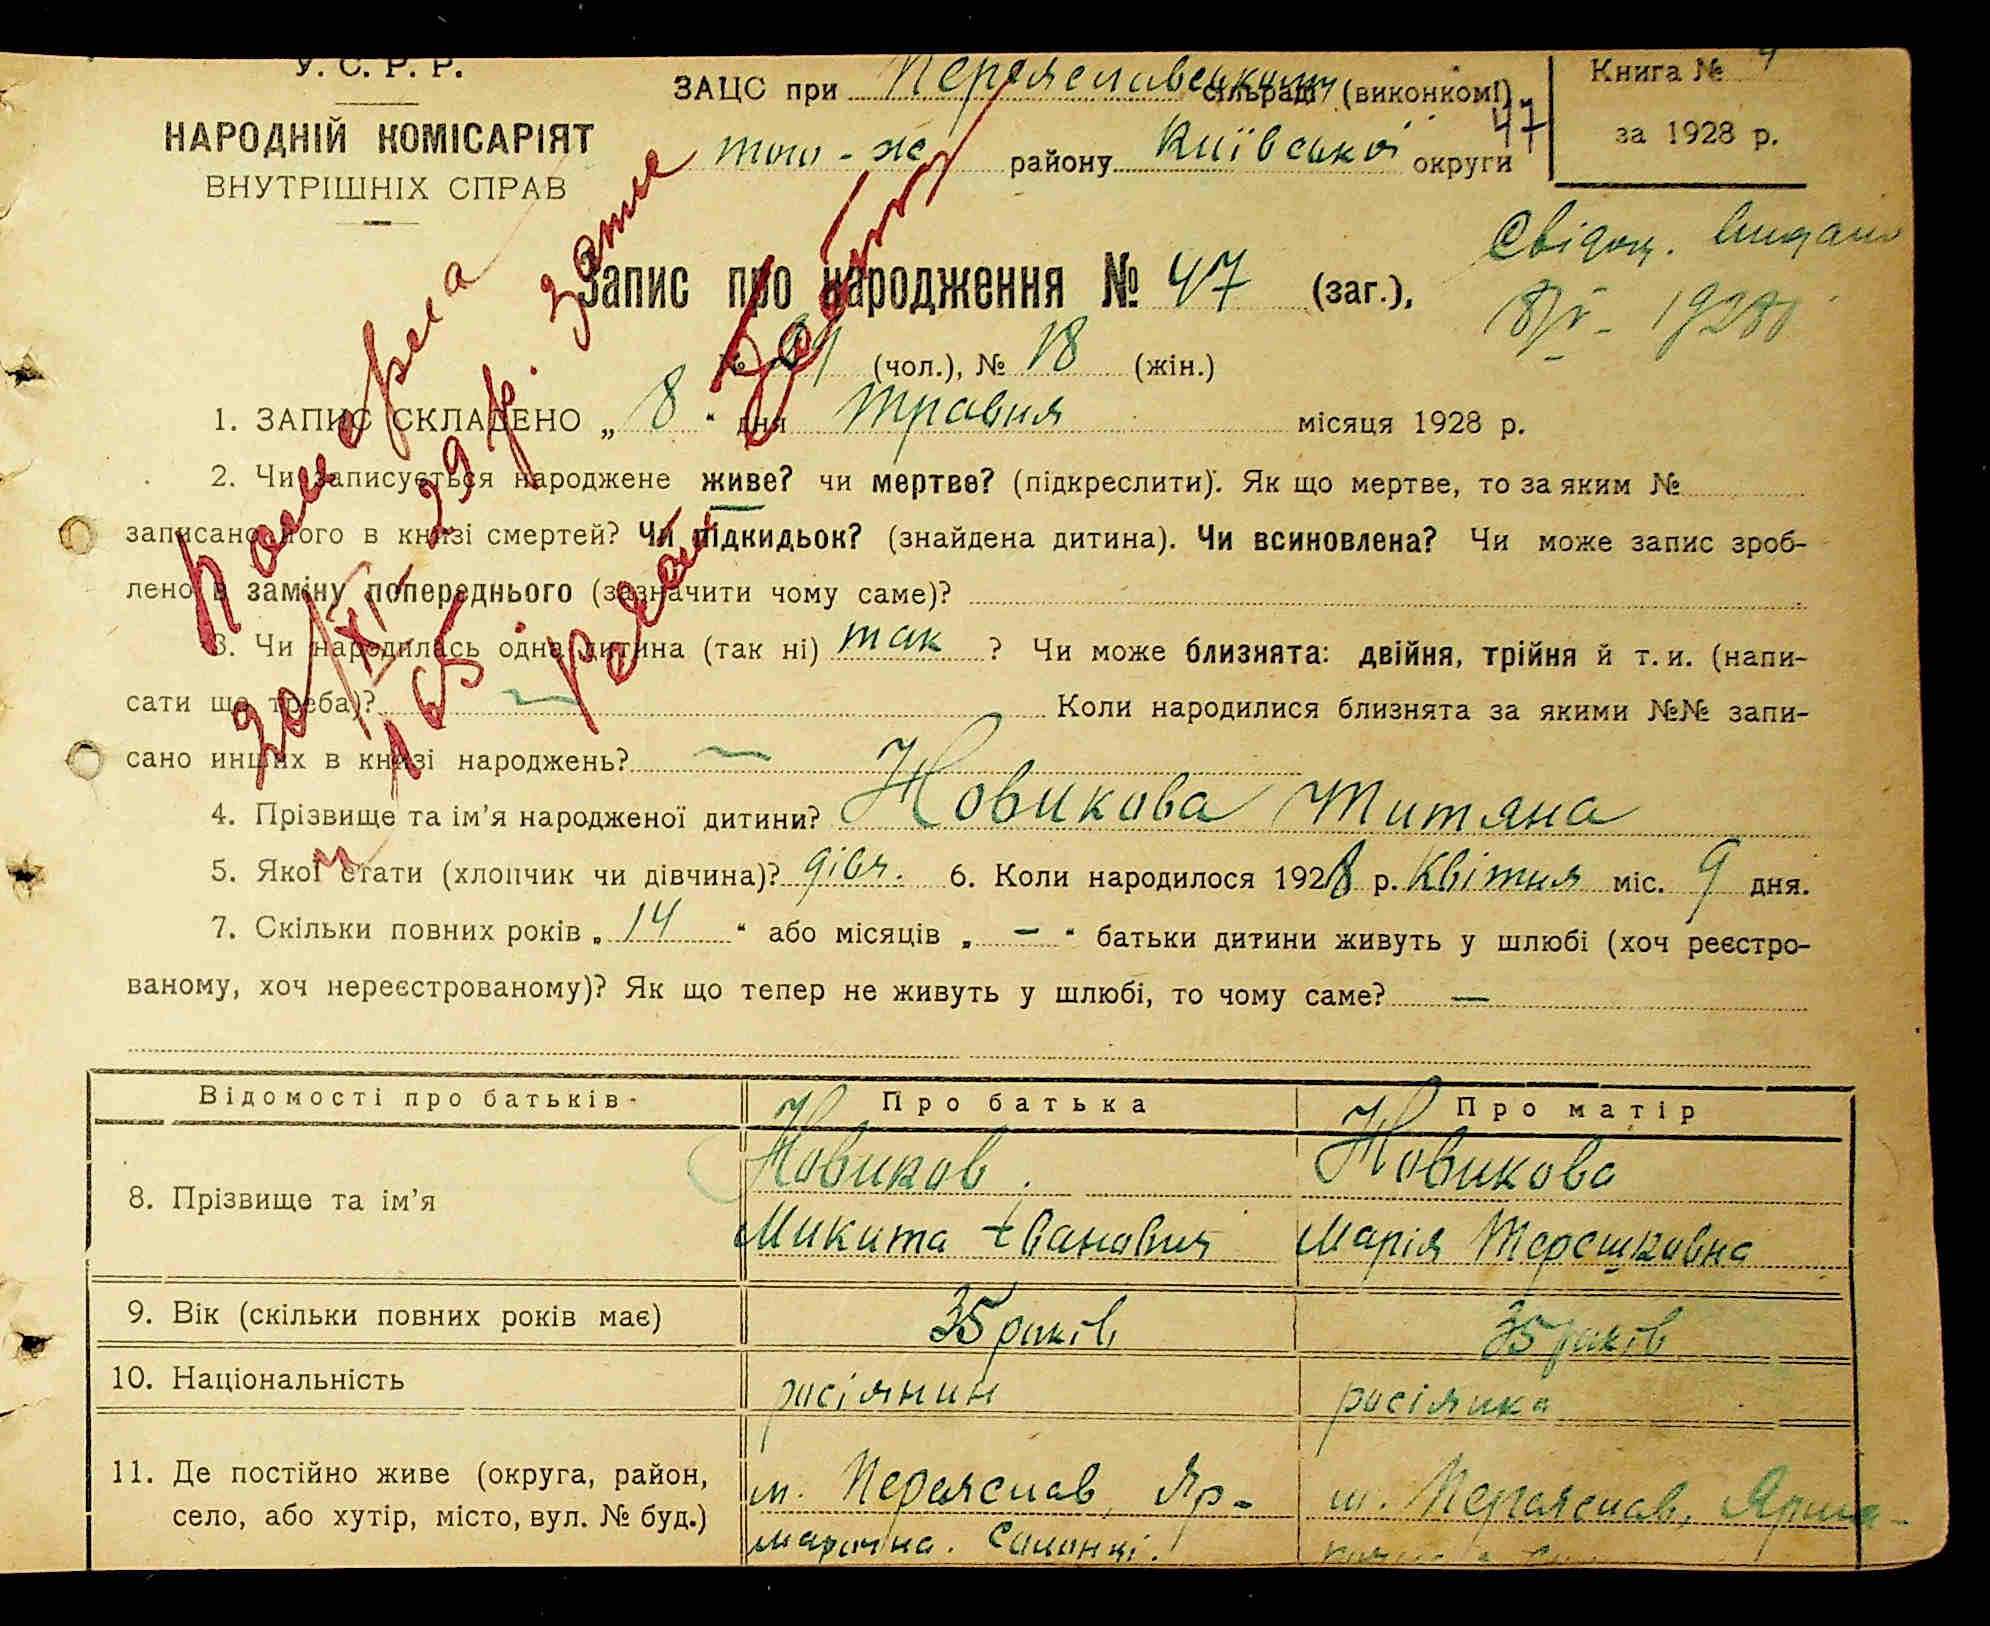 У. С. Р. Р.
НАРОДНІЙ КОМІСАРІЯТ
ВНУТРІШНІХ СПРАВ
ЗАЦС при Переяславському сільраді (виконкомі)
того-ж району Київської округи
47
Книга №
за 1928 р.
Свідоц. видано
8/V - 1928 р.
Запис про народження № 47 (заг.),
№ (чол.), № 18 (жін.)
1. ЗАПИС СКЛАДЕНО „ 8 “ дня травня місяця 1928 р.
2. Чи записується народжене живе? чи мертве? (підкреслити). Як що мертве, то за яким №
записано його в книзі смертей? Чи підкидьок? (знайдена дитина). Чи всиновлена? Чи може запис зроб-
лено в заміну попереднього (зазначити чому саме)?
3. Чи народилась одна дитина (так ні) так ? Чи може близнята: двійня, трійня й т. и. (напи-
сати що треба)? Коли народилися близнята за якими №№ запи-
сано инших в книзі народжень?
4. Прізвище та ім’я народженої дитини? Новикова Титяна
5. Якої стати (хлопчик чи дівчина)? дівч. 6. Коли народилося 1928 р. Квітня міс. 9 дня.
7. Скільки повних років „ 14 “ або місяців „ - “ батьки дитини живуть у шлюбі (хоч реєстро-
ваному, хоч нереєстрованому)? Як що тепер не живуть у шлюбі, то чому саме? —
померла
20/XI - 29 р. запис
165
Відомості про батьків Про батька Про матір
8. Прізвище та ім’я
Новиков Новикова
Микита Іванович Марія Терешковна
9. Вік (скільки повних років має) 35 років 35 років
10. Національність росіянин росіянка
11. Де постійно живе (округа, район,
село, або хутір, місто, вул. № буд.)
м. Переяслав, Яр- м. Переяслав, Ярма-
марочна. Солонці.